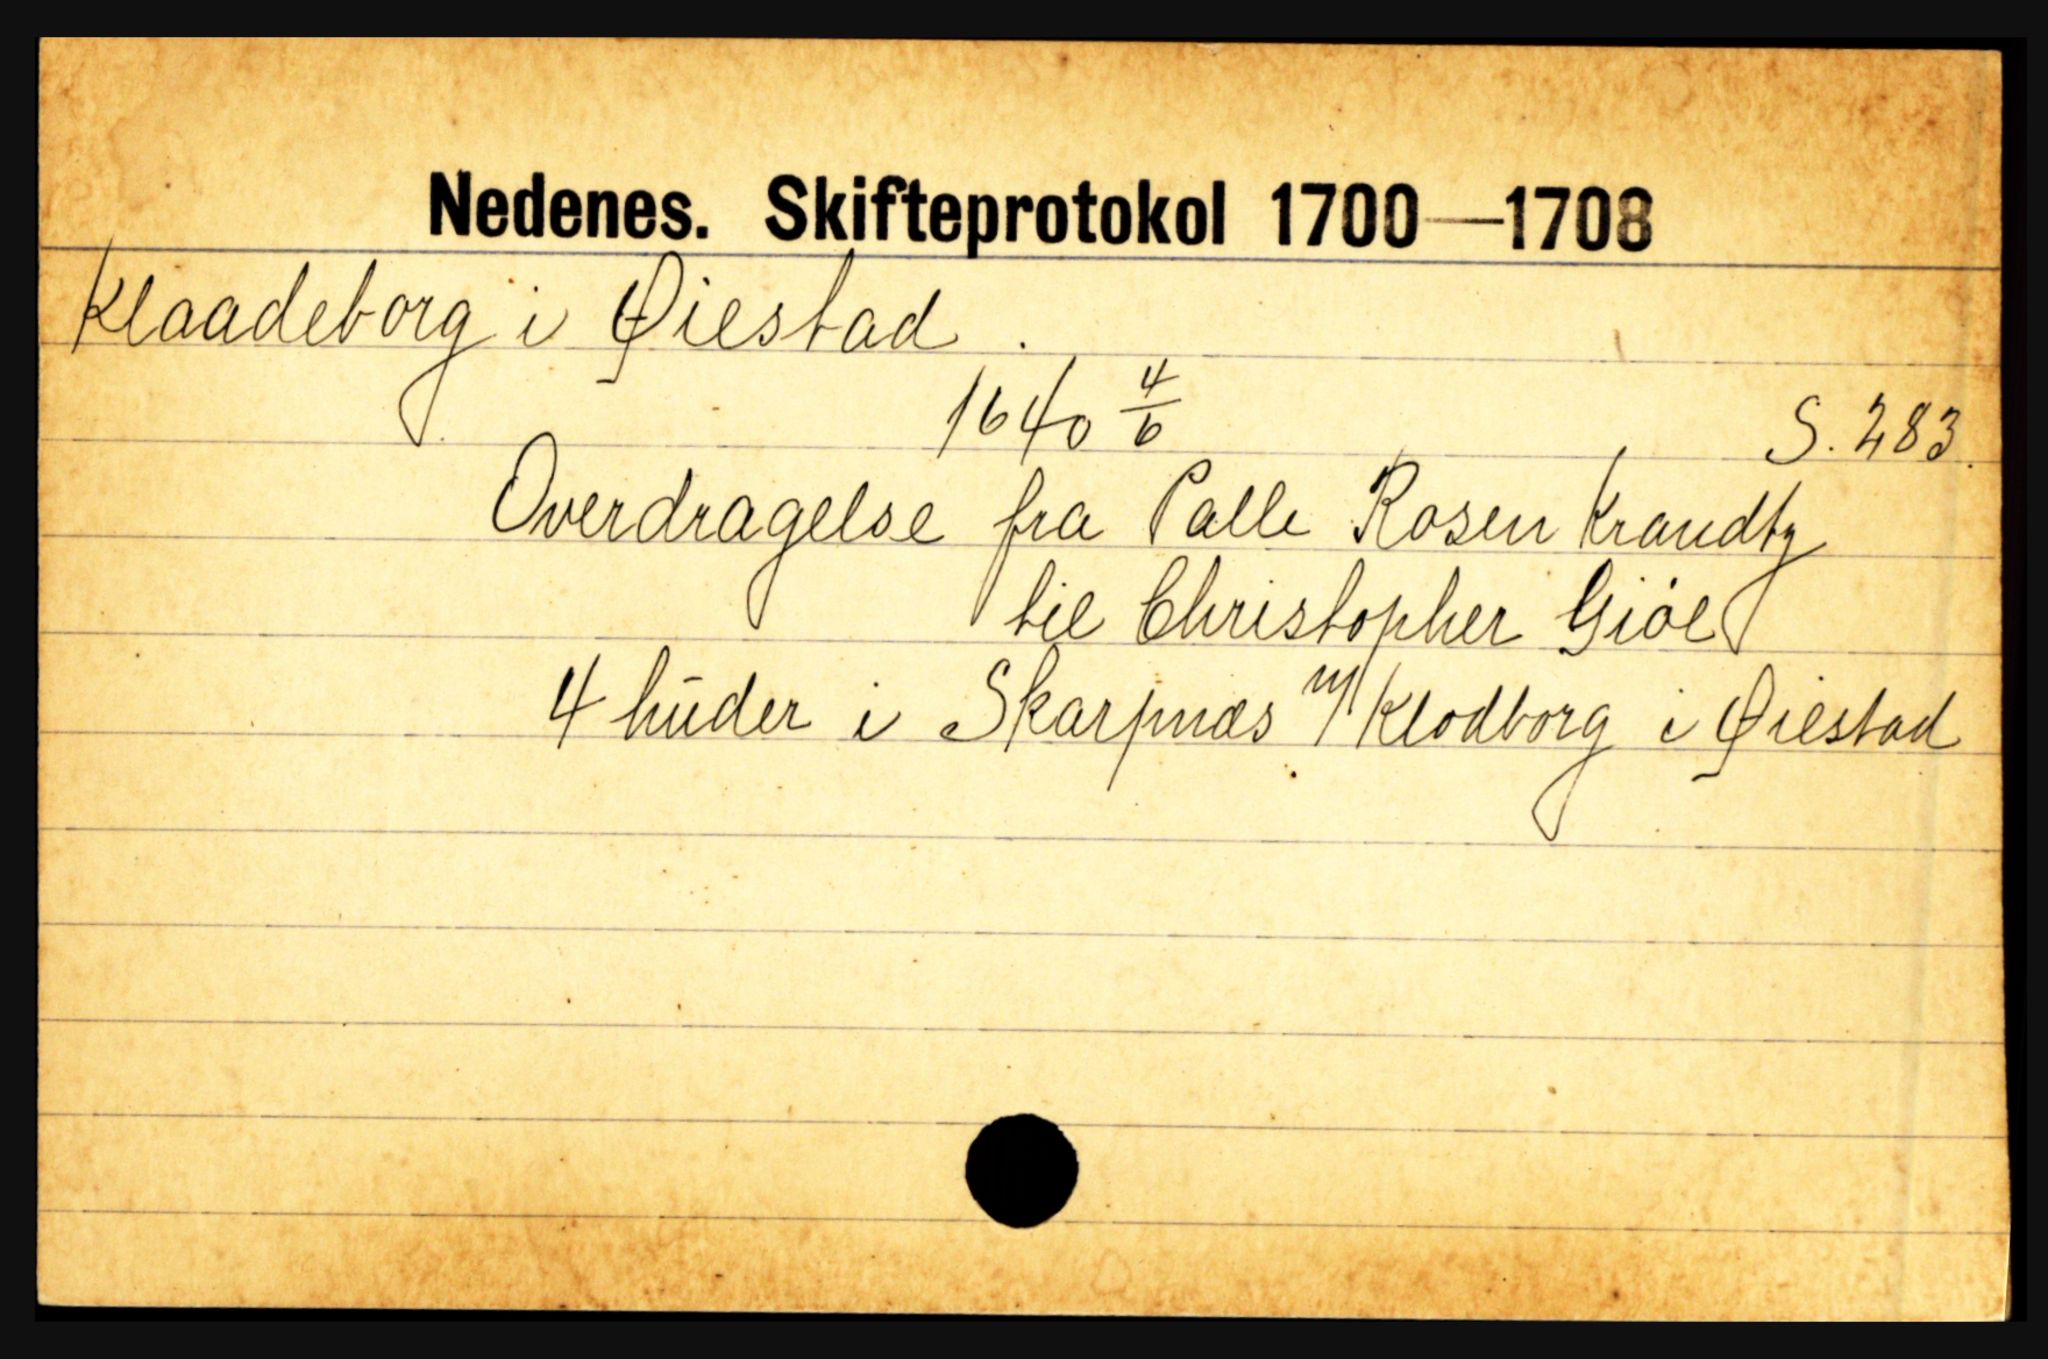 Nedenes. Skifteprotokol 1700—1708
Klaadeborg i Øiestad.
1640 4/6 S. 283.
Overdragelse fra Palle Rosen Krandtz
til Christopher Giöe
4 hūder i Skarpnæs m/ Klodborg i Øiestad